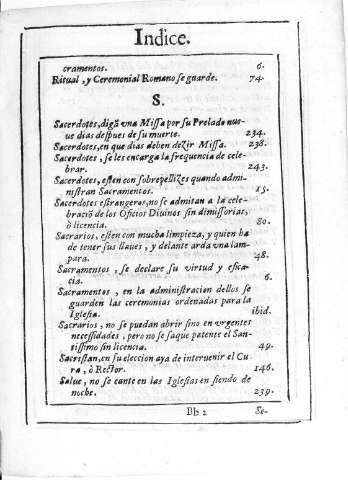 Indice.
cramentos. 6.
Ritual, y Ceremonial Romano se guarde. 74.
S.
Sacerdotes, digã vna Missa por su Prelado nue-
ue dias despues de su muerte. 234.
Sacerdotes, en que dias deben deZir Missa. 238.
Sacerdotes, se les encarga la frequencia de cele-
brar. 243.
Sacerdotes, esten con sobrepelliZes quando admi-
nistran Sacramentos. 15.
Sacerdotes estrangeros, no se admitan a la cele-
braciõ de los Oficios Diuinos sin dimissorias,
ò licencia. 80.
Sacrarios, esten con mucha limpieza, y quien ha
de tener sus llaues, y delante arda vna lam-
para. 48.
Sacramentos, se declare su virtud y efica-
cia. 6.
Sacramentos, en la administracion dellos se
guarden las ceremonias ordenadas para la
Iglesia. ibid.
Sacrarios, no se puedan abrir sino en vrgentes
necessidades, pero no se saque patente el San-
tissimo sin licencia. 49.
Sacristan, en su eleccion aya de interuenir el Cu
ra, ò Rector. 146.
Salue, no se cante en las Iglesias en siendo de
noche. 239.
Bb 2 Se-